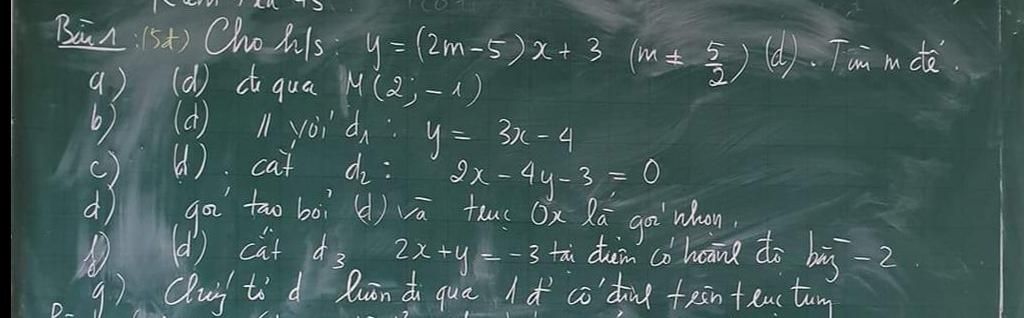 Bài 1: (5đ) Cho h/s: y = (2m-5)x + 3 (m ≠ 5/2) (d). Tìm m để.
a) (d) đi qua M(2; -1)
b) (d) // với d₁: y = 3x - 4
c) (d). cắt d₂: 2x - 4y - 3 = 0
d) góc tạo bởi (d) và trục Ox là góc nhọn.
f) (d) cắt d₃ 2x + y = -3 tại điểm có hoành độ bằng -2.
g) Chứng tỏ d luôn đi qua 1 đ' cố định trên trục tung